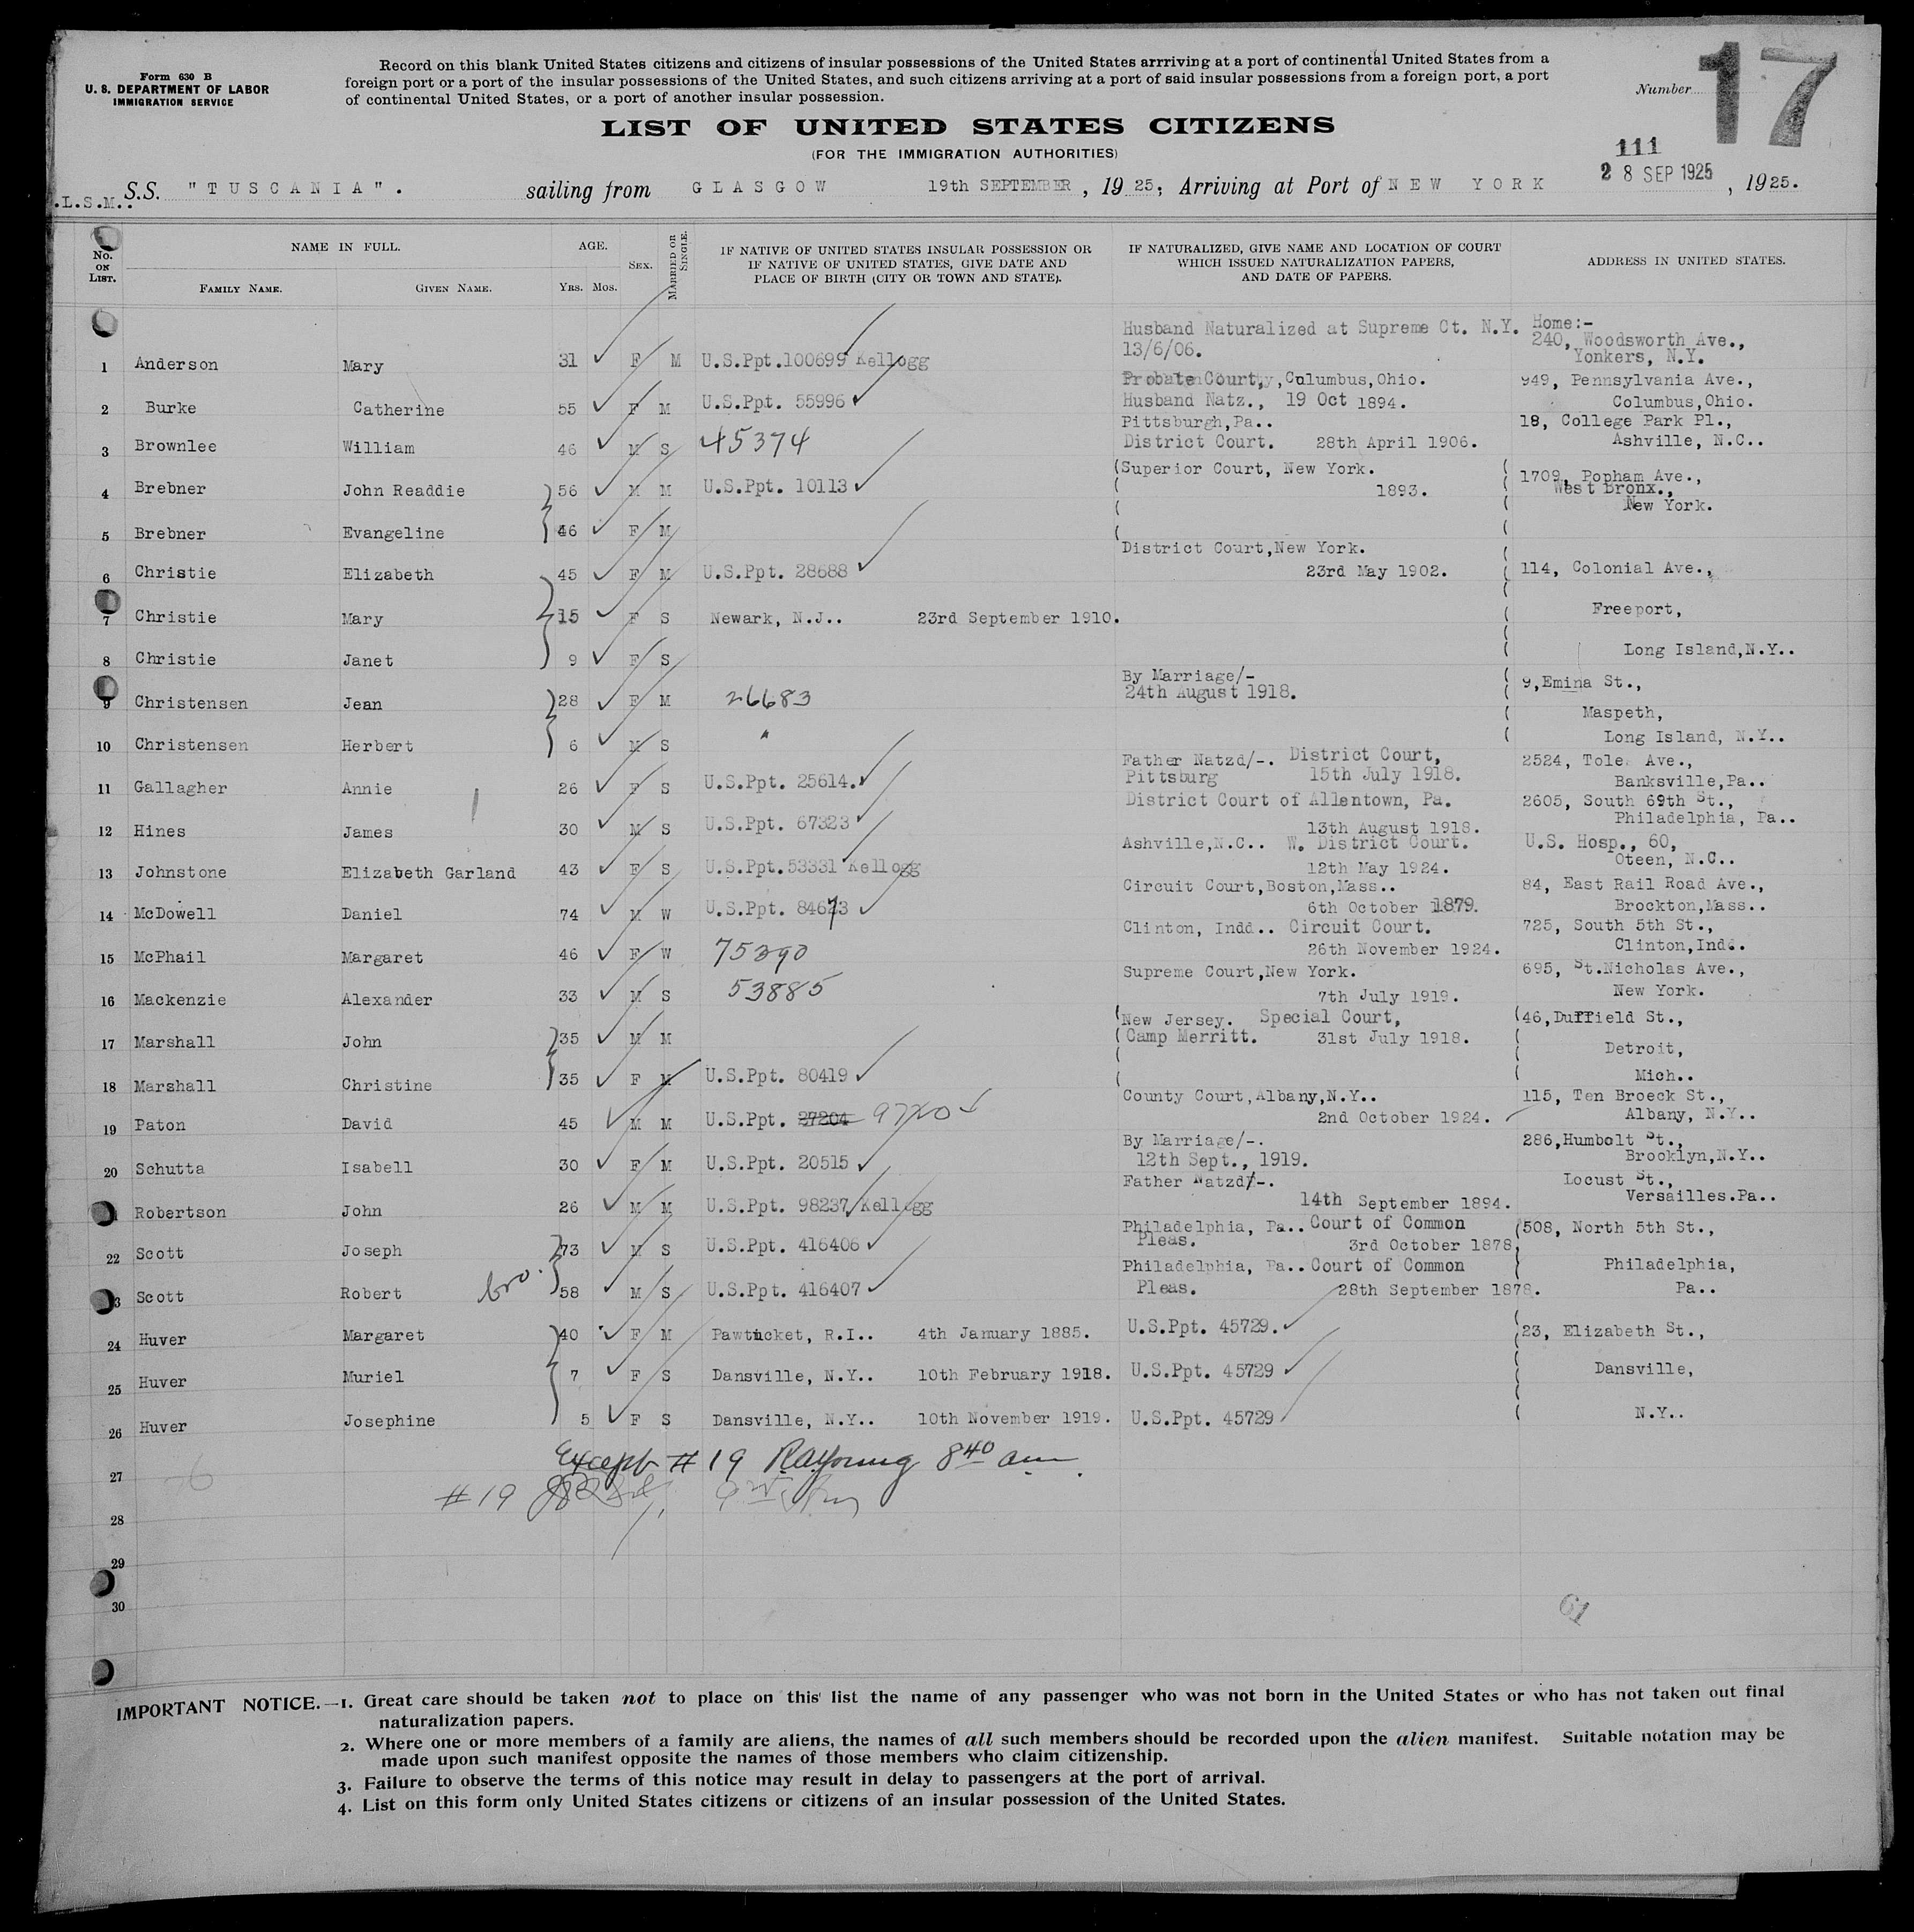 Form 630 B
U. S. DEPARTMENT OF LABOR
IMMIGRATION SERVICE
Record on this blank United States citizens and citizens of insular possessions of the United States arrriving at a port of continental United States from a
foreign port or a port of the insular possessions of the United States, and such citizens arriving at a port of said insular possessions from a foreign port, a port
of continental United States, or a port of another insular possession.
Number 17
LIST OF UNITED STATES CITIZENS
(FOR THE IMMIGRATION AUTHORITIES)
111
28 SEP 1925
.L.S.M.. S.S. "TUSCANIA". sailing from GLASGOW 19th SEPTEMBER, 1925; Arriving at Port of NEW YORK , 1925.
No. ON LIST. NAME IN FULL. AGE. SEX. MARRIED OR SINGLE. IF NATIVE OF UNITED STATES INSULAR POSSESSION OR IF NATIVE OF UNITED STATES, GIVE DATE AND PLACE OF BIRTH (CITY OR TOWN AND STATE). IF NATURALIZED, GIVE NAME AND LOCATION OF COURT WHICH ISSUED NATURALIZATION PAPERS, AND DATE OF PAPERS. ADDRESS IN UNITED STATES.
FAMILY NAME. GIVEN NAME. YRS. MOS.
1 Anderson Mary 31 F M U.S.Ppt.100699 Kellogg Husband Naturalized at Supreme Ct. N.Y. 13/6/06. Home:- 240, Woodsworth Ave., Yonkers, N.Y.
2 Burke Catherine 55 F M U.S.Ppt. 55996 Probate Court, Culumbus,Ohio. Husband Natz., 19 Oct 1894. 949, Pennsylvania Ave., Columbus,Ohio.
3 Brownlee William 46 M S 45374 Pittsburgh,Pa.. District Court. 28th April 1906. 18, College Park Pl., Ashville, N.C..
4 Brebner John Readdie 56 M M U.S.Ppt. 10113 Superior Court, New York. 1893. 1709, Popham Ave., West Bronx., New York.
5 Brebner Evangeline 46 F M
6 Christie Elizabeth 45 F M U.S.Ppt. 28688 District Court,New York. 23rd May 1902. 114, Colonial Ave.,
7 Christie Mary 15 F S Newark, N.J.. 23rd September 1910. Freeport,
8 Christie Janet 9 F S Long Island,N.Y..
9 Christensen Jean 28 F M 26683 By Marriage/- 24th August 1918. 9,Emina St., Maspeth,
10 Christensen Herbert 6 M S " Long Island, N.Y..
11 Gallagher Annie 26 F S U.S.Ppt. 25614. Father Natzd/-. District Court, Pittsburg 15th July 1918. 2524, Tole Ave., Banksville,Pa..
12 Hines James 30 M S U.S.Ppt. 67323 District Court of Allentown, Pa. 13th August 1918. 2605, South 69th St., Philadelphia, Pa..
13 Johnstone Elizabeth Garland 43 F S U.S.Ppt.53331 Kellogg Ashville,N.C.. W. District Court. 12th May 1924. U.S. Hosp., 60, Oteen, N.C..
14 McDowell Daniel 74 M W U.S.Ppt. 84673 Circuit Court,Boston,Mass.. 6th October 1879. 84, East Rail Road Ave., Brockton,Mass..
15 McPhail Margaret 46 F W 75390 Clinton, Indd.. Circuit Court. 26th November 1924. 725, South 5th St., Clinton,Ind..
16 Mackenzie Alexander 33 M S 53885 Supreme Court,New York. 7th July 1919. 695, St.Nicholas Ave., New York.
17 Marshall John 35 M M New Jersey. Special Court, Camp Merritt. 31st July 1918. 46,Duffield St., Detroit,
18 Marshall Christine 35 F M U.S.Ppt. 80419 Mich..
19 Paton David 45 M M U.S.Ppt. 27204 9720 County Court,Albany,N.Y.. 2nd October 1924. 115, Ten Broeck St., Albany, N.Y..
20 Schutta Isabell 30 F M U.S.Ppt. 20515 By Marriage/-. 12th Sept., 1919. 286,Humbolt St., Brooklyn,N.Y..
Robertson John 26 M M U.S.Ppt. 98237 Kellogg Father Natzd/-. 14th September 1894. Locust St., Versailles.Pa..
22 Scott Joseph 73 M S U.S.Ppt. 416406 Philadelphia, Pa.. Court of Common Pleas. 3rd October 1878, 508, North 5th St., Philadelphia,
3 Scott Robert bro. 58 M S U.S.Ppt. 416407 Philadelphia, Pa.. Court of Common Pleas. 28th September 1878. Pa..
24 Huver Margaret 40 F M Pawtucket, R.I.. 4th January 1885. U.S.Ppt. 45729. 23, Elizabeth St.,
25 Huver Muriel 7 F S Dansville, N.Y.. 10th February 1918. U.S.Ppt. 45729 Dansville,
26 Huver Josephine 5 F S Dansville, N.Y.. 10th November 1919. U.S.Ppt. 45729 N.Y..
Except #19 RaYoung 8 40 am.
27
#19
28
29
30
61
IMPORTANT NOTICE.—1. Great care should be taken not to place on this list the name of any passenger who was not born in the United States or who has not taken out final
naturalization papers.
2. Where one or more members of a family are aliens, the names of all such members should be recorded upon the alien manifest. Suitable notation may be
made upon such manifest opposite the names of those members who claim citizenship.
3. Failure to observe the terms of this notice may result in delay to passengers at the port of arrival.
4. List on this form only United States citizens or citizens of an insular possession of the United States.